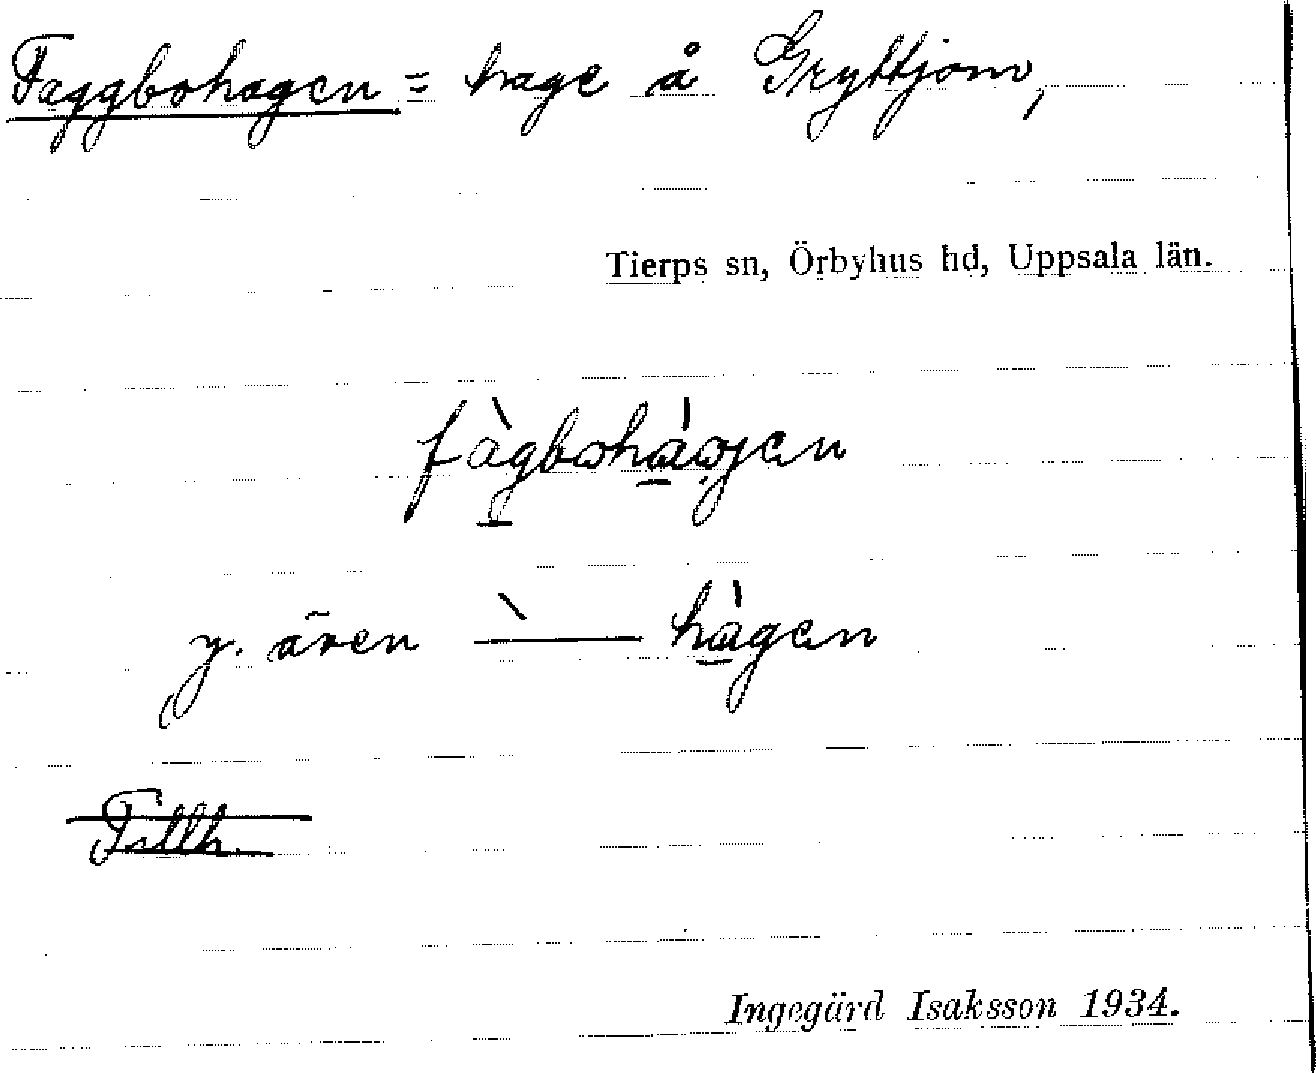 Faggbohagen = hage å Gryttjom,
Tierps sn, Örbyhus hd, Uppsala län.
fàgbohágen
y. även — hàgen
Tillh.
Ingegärd Isaksson 1934.